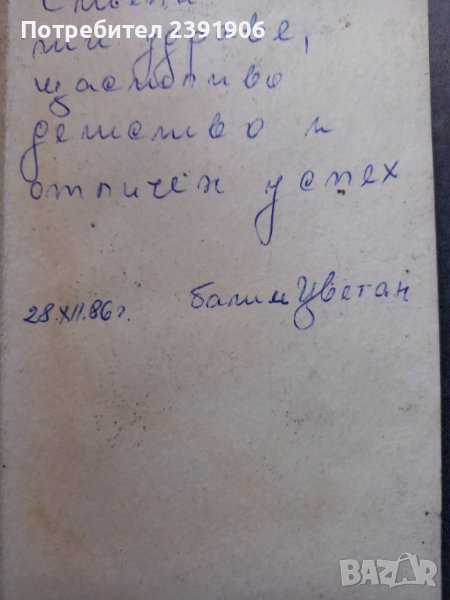 Потребител 2391906
ми здраве,
щастливо
детство и
отличен успех
28.XII.86г. бати Цветан
BAZAR